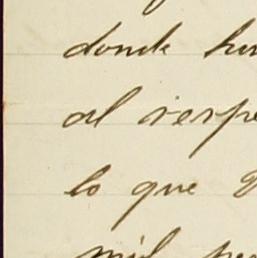 donde
al respe
lo que
mil